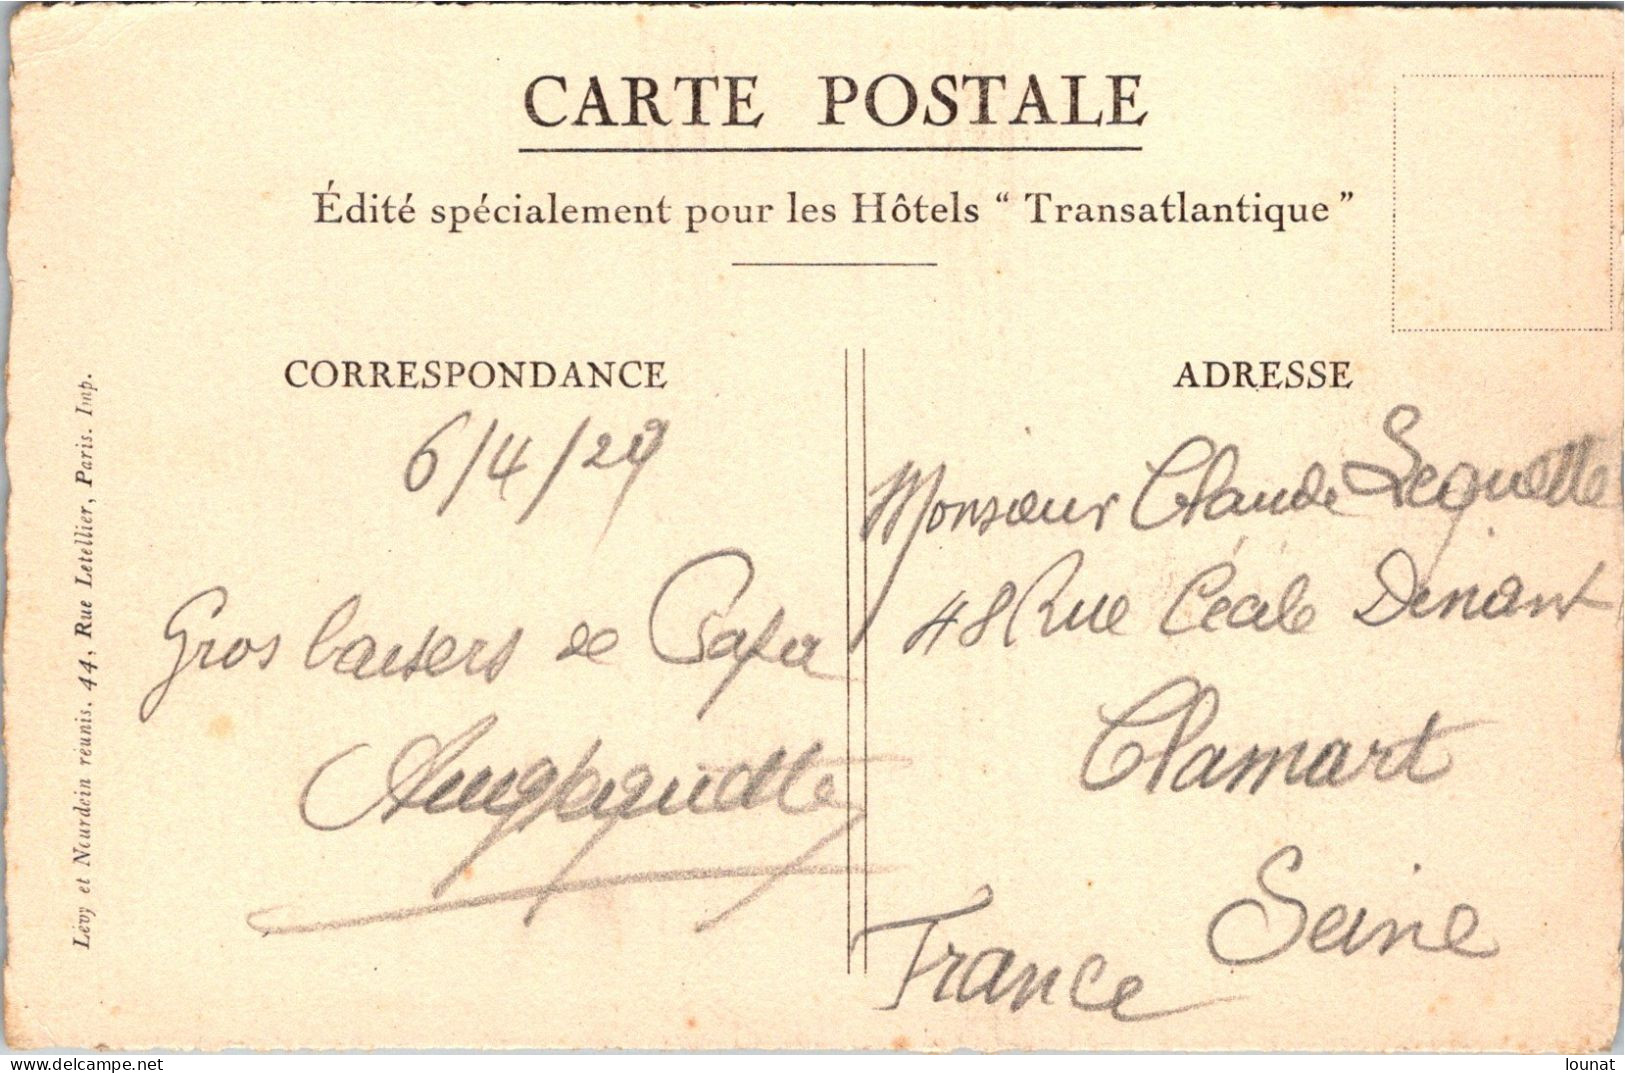 CARTE POSTALE
Édité spécialement pour les Hôtels “ Transatlantique ”
CORRESPONDANCE
6/4/29
Gros baisers de Papa
ADRESSE
Monsieur Claude Lequette
48 Rue Cécile Dinant
Clamart
Seine
France
Lévy et Neurdein réunis. 44, Rue Letellier, Paris. Imp.
delcampe.net
lounat